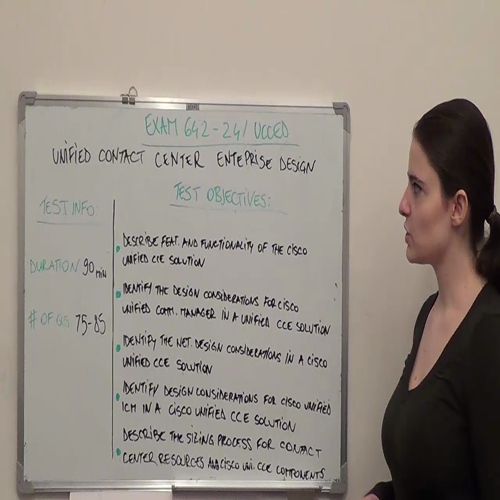 EXAM 642-241 UCCED
UNIFIED CONTACT CENTER ENTEPRISE DESIGN
TEST INFO:
DURATION 90 min
# OF QS 75-85
TEST OBJECTIVES:
DESCRIBE FEAT. AND FUNCTIONALITY OF THE CISCO
UNIFIED CCE SOLUTION
IDENTIFY THE DESIGN CONSIDERATIONS FOR CISCO
UNIFIED COMM. MANAGER IN A UNIFIED CCE SOLUTION
IDENTIFY THE NET. DESIGN CONSIDERATIONS IN A CISCO
UNIFIED CCE SOLUTION
IDENTIFY DESIGN CONSIDERATIONS FOR CISCO UNIFIED
ICM IN A CISCO UNIFIED CCE SOLUTION
DESCRIBE THE SIZING PROCESS FOR CONTACT
CENTER RESOURCES AND CISCO UNI. CCE COMPONENTS